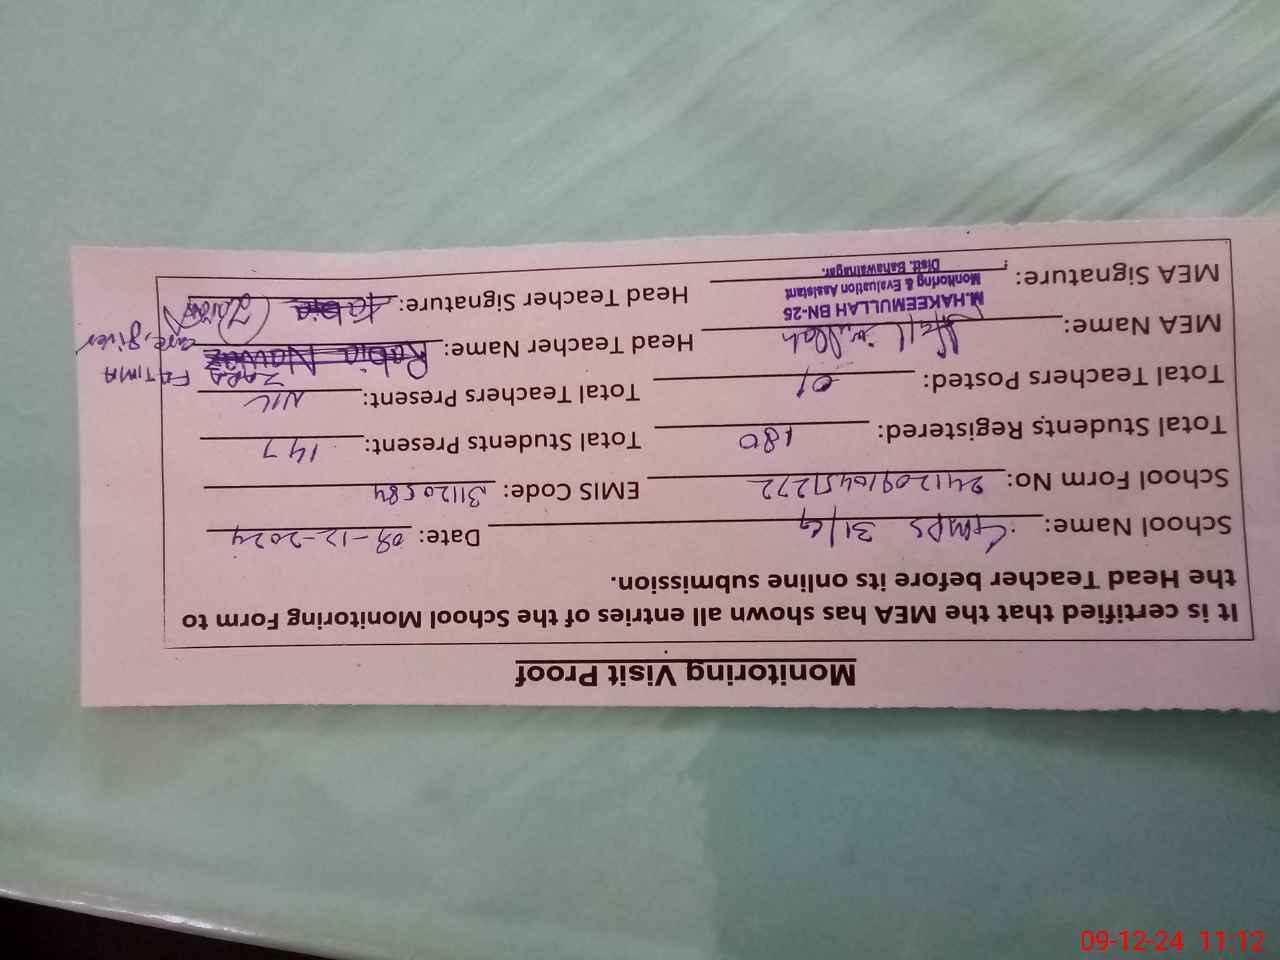 Monitoring Visit Proof
It is certified that the MEA has shown all entries of the School Monitoring Form to
the Head Teacher before its online submission.
School Name: GMPS 31/G Date: 09-12-2024
School Form No: EMIS Code: 31120584
Total Students Registered: 180 Total Students Present: 147
Total Teachers Posted: 01 Total Teachers Present: NIL
ZARA FATIMA
MEA Name: Head Teacher Name: Rabia Nawaz care giver
M.HAKEEMULLAH BN-25
Monitoring & Evaluation Assistant
Distt. Bahawalnagar.
MEA Signature: Head Teacher Signature: Rabia Zara
09-12-24 11:12